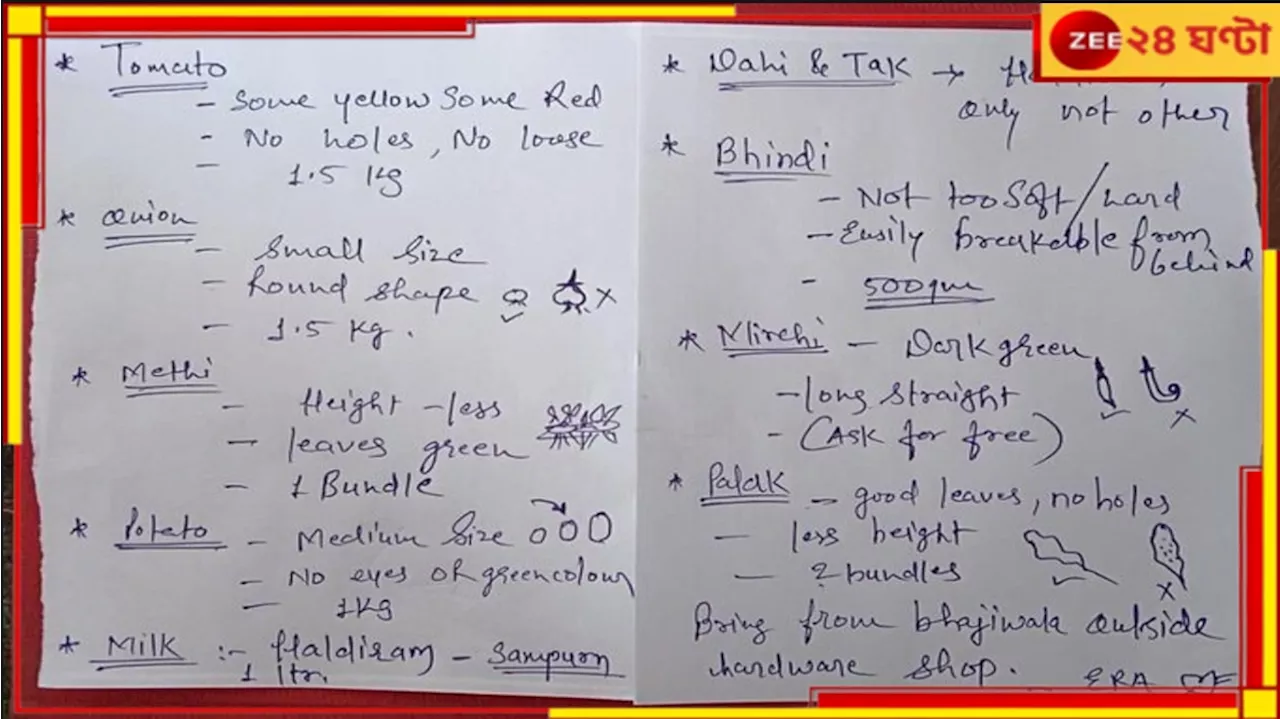 * Tomato
- Some yellow Some Red
- No holes, No loose
- 1.5 Kg
* Onion
- Small Size
- Round shape
- 1.5 Kg.
* Methi
- Height - less
- leaves green
- 1 Bundle
* Potato - Medium Size
- No eyes or green colour
- 1 Kg
* Milk :- Haldiram - Sampurn
1 ltr.
ZEE ২৪ ঘণ্টা
* Dahi & Tak →
only not other
* Bhindi
- Not too Soft / hard
- Easily breakable from
behind
- 500gm
* Mirchi - Dark green
- long straight
- (Ask for free)
* Palak - good leaves, no holes
- less height
- 2 bundles
Bring from bhajiwala outside
hardware shop.
ERA OF